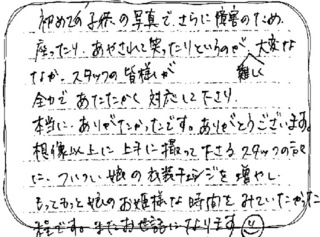 初めての子供の写真でさらに障害のため、
座ったり、あやされて笑ったりというのが、大変な
難しく
なか、スタッフの皆様が
全力であたたかく対応して下さり、
本当に、ありがたかったです。ありがとうございます。
想像以上に上手に撮って下さるスタッフの
に、ついつい娘の衣装チェンジを増やし
もっともっと娘のお姫様な時間をみていたかった
程です。またお世話になります